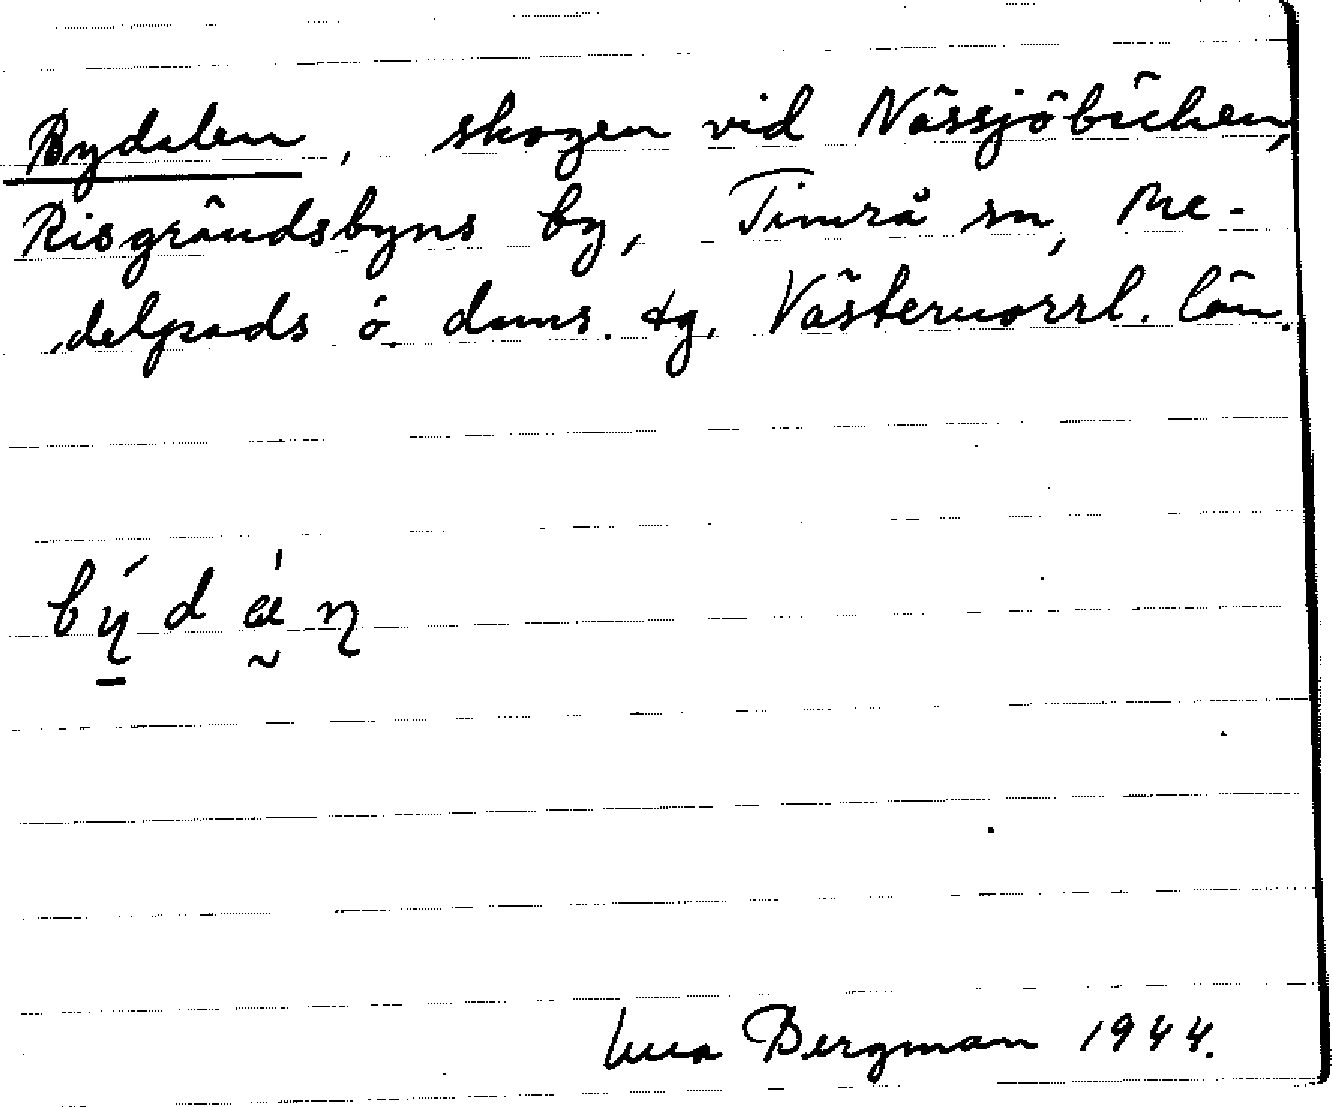 Bydalen, skogen vid Nässjöbäcken,
Risgrändsbyns by, Timrå sn, Me-
delpads ö. doms. tg. Västernorrl. län.
Bergman 1944.